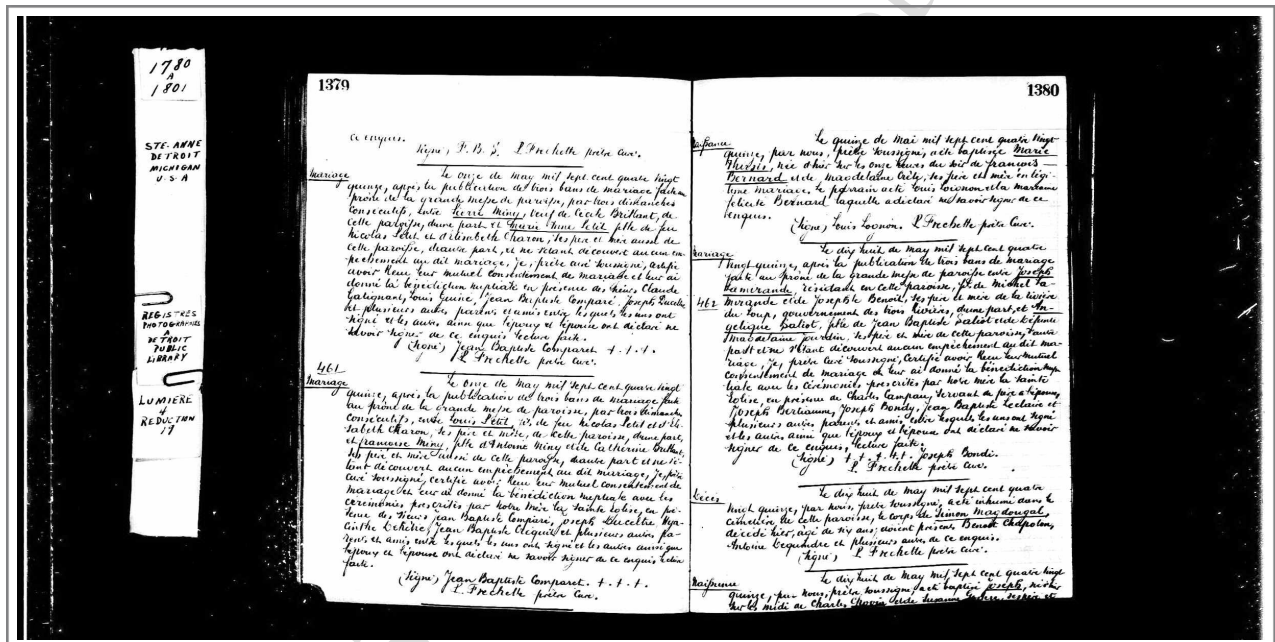 1780
A
1801
STE. ANNE
DETROIT
MICHIGAN
U.S.A
REGISTRES
PHOTOGRAPHIES
DE TROIT
PUBLIC
LIBRARY
LUMIERE
4
REDUCTION
19
1379
ce enquis.
Signé, F. B. L. Frechette prètre Curé.
Mariage
Le onze de May mil sept cent quatre vingt
quinze, après la publication de trois bans de mariage faite au
prône de la grande messe de paroisse, par trois dimanches
Consécutifs, entre Pierre Miny, veuf de Cecile Brillant, de
cette paroisse, d'une part et Marie Anne Petit fille de feu
Nicolas Petit et d'Elisabeth Charon, ses père et mère aussi de
cette paroisse, d'autre part, et ne s'étant découvert aucun em-
pechement au dit mariage, je, prètre curé soussigné, certifie
avoir Reçu leur mutuel consentement de mariage et leur ai
donné la bénédiction nuptiale en présence des sieurs Claude
Louis Jean Baptiste Comparé, Joseph
et plusieurs autres parens et amis entre lesquels les uns ont
signé et les autres ainsi que l'époux et l'épouse ont déclaré ne
savoir signer de ce enquis lecture faite.
(Signé) Jean Baptiste Comparet. + . + . + .
L. Frechette prètre Curé.
461
Mariage
Le onze de May mil sept cent quatre vingt
quinze, après la publication de trois bans de mariage faite
au prône de la grande messe de paroisse, par trois dimanches
consécutifs, entre Louis Petit, fs. de feu Nicolas Petit et d'Eli-
sabeth Charon, ses père et mère, de cette paroisse, d'une part,
et françoise Miny, fille d'Antoine Miny et de Catherine Brillant,
ses père et mère aussi de cette paroisse, d'autre part et ne s'é-
tant découvert aucun empêchement au dit mariage, Je, prètre
curé soussigné, certifie avoir Reçu leur mutuel consentement de
mariage et leur ai donné la bénédiction nuptiale avec les
cérémonies prescrites par notre Mère la Sainte Eglise, en pré-
sence des sieurs Jean Baptiste Comparé, Joseph Hya-
cinthe Jean Baptiste et plusieurs autres pa-
rens et amis entre lesquels les uns ont signé et les autres ainsi que
l'époux et l'épouse ont déclaré ne savoir signer de ce enquis lecture
faite.
(Signé) Jean Baptiste Comparet. + . + . + .
L. Frechette prètre Curé.
1380
Naissance
Le quinze de Mai mil sept cent quatre vingt
quinze, par nous, prètre soussigné, a été baptisée Marie
née d'hier sur les onze heures du soir de françois
Bernard et de Magdelaine ses père et mère en légi-
time mariage. Le parrain a été Louis Loignon et la marraine
felicité Bernard laquelle a déclaré ne savoir signer de ce
enquis.
(Signé) Louis Lognon. L. Frechette prètre Curé.
Mariage
Le dix huit de May mil sept cent quatre
vingt quinze, après la publication de trois bans de mariage
faite au prône de la grande messe de paroisse entre Joseph
Lamerande, résidant en cette paroisse, fs. de Michel La-
462
merande et de Josephte Benoit, ses père et mère de la rivière
du Loup, gouvernement des trois Rivières, d'une part, et An-
gelique Saliot, fille de Jean Baptiste Saliot et de
Magdelaine Jourdin, ses père et mère de cette paroisse, d'autre
part et ne s'étant découvert aucun empêchement au dit ma-
riage, Je, prètre curé soussigné, Certifie avoir Reçu leur mutuel
consentement de mariage et leur ai donné la bénédiction nup-
tiale avec les Cérémonies prescrites par notre mère la sainte
Eglise, en présence de Charles Campau, servant de père à l'épouse,
Joseph Berthiaume, Joseph Bondy, Jean Baptiste Leclaire et
plusieurs autres parens et amis entre lesquels les uns ont signé
et les autres ainsi que l'époux et l'épouse ont déclaré ne savoir
signer de ce enquis, lecture faite.
(Signé) + . + . + . +. Joseph Bondi.
L. Frechette prètre Curé.
Décès
Le dix huit de May mil sept cent quatre
vingt quinze, par nous, prètre soussigné, a été inhumé dans le
cimetière de cette paroisse, le corps de Simon Magdougal,
décédé hier, agé de dix ans; étoient présens Benoit Chapoton,
Antoine Deguindre et plusieurs autres de ce enquis.
(Signé) L. Frechette prètre Curé.
Naissance
Le dix huit de May mil sept cent quatre vingt
quinze, par nous, prètre soussigné, a été baptisé Joseph, né hier
sur les midi de Charles Chovin et de Susanne ses père et